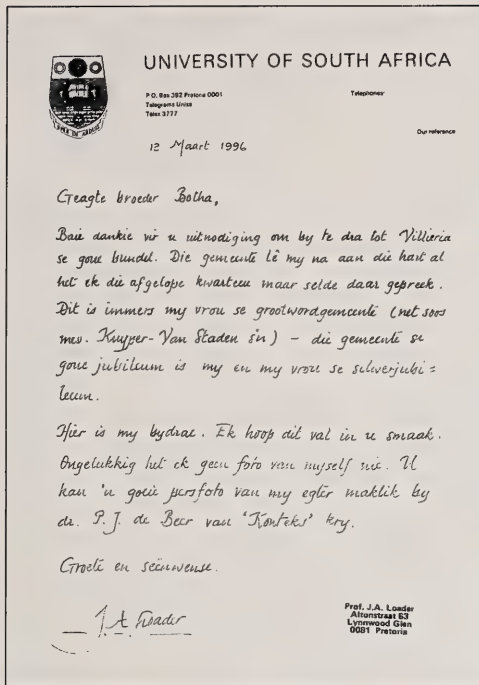 UNIVERSITY OF SOUTH AFRICA
P O. Box 392 Pretoria 0001
Telegrams Unisa
Telex 3777
Telephones
Our reference
12 Maart 1996
Geagte broeder Botha,
Baie dankie vir u uitnodiging om by te dra tot Villieria
se goue bundel. Die gemeente lê my na aan die hart al
het ek die afgelope kwarteeu maar selde daar gepreek.
Dit is immers my vrou se grootwordgemeente (net soos
mev. Kuyper-Van Staden s'n) – die gemeente se
goue jubileum is my en my vrou se silwerjubi=
leum.
Hier is my bydrae. Ek hoop dit val in u smaak.
Ongelukkig het ek geen foto van myself nie. U
kan 'n goeie persfoto van my egter maklik by
dr. P. J. de Beer van 'Konteks' kry.
Groete en seënwense.
J.A. Loader
Prof. J.A. Loader
Altonstraat 63
Lynnwood Glen
0081 Pretoria